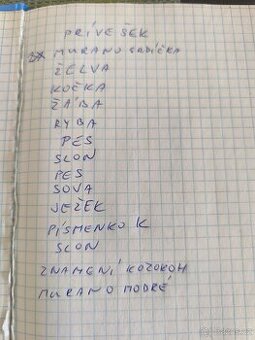 PRÍVEŠEK
2x MURANO SRDÍČKA
ŽELVA
KOČKA
ŽÁBA
RYBA
PES
SLON
PES
SOVA
JEŽEK
PÍSMENKO K
SLON
ZNAMENÍ KOZOROH
MURANO MODRÉ